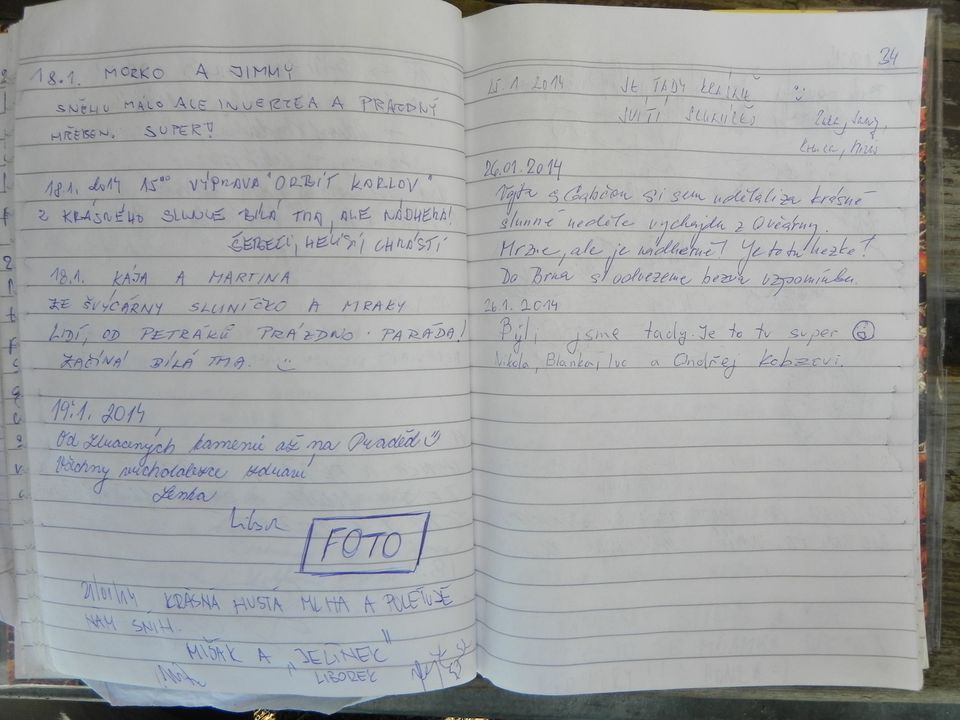 18.1. MORKO A JIMMY
SNĚHU MÁLO ALE INVERZEA A PRÁZDNÝ
HŘEBEN. SUPER!
18.1. 2014 15⁰⁰ VÝPRAVA "ORBIT KARLOV"
Z KRÁSNÉHO SLUNCE BÍLÁ TMA, ALE NÁDHERA!
18.1. KÁJA A MARTINA
ZE ŠVÝCÁRNY SLUNÍČKO A MRAKY
LIDÍ, OD PETRÁKŮ PRÁZDNO. PARÁDA!
ZAČÍNÁ BÍLÁ TMA. :)
19.1. 2014
Od Ztracených kamenů až na Praděd :)
Všechny zdraví
Lenka
Libor
FOTO
21/01/14 KRÁSNÁ HUSTÁ MLHA A POLETUJE
NÁM SNÍH.
MIŠÁK A „JELÍNEK"
LIBOREK
34
25.1 2014 JE TADY KRÁSNĚ :)
SVÍTÍ SLUNÍČKO
26.01.2014
si sem udělali za krásné
slunné neděle vycházku z Ovčárny.
Mrzne, ale je nádherně! Je to tu hezké!
Do Brna si odvezeme bezva vzpomínku.
26.1. 2014
Byli jsme tady. Je to tu super
Nikola, Blanka, Ivo a Ondřej Kobzovi.